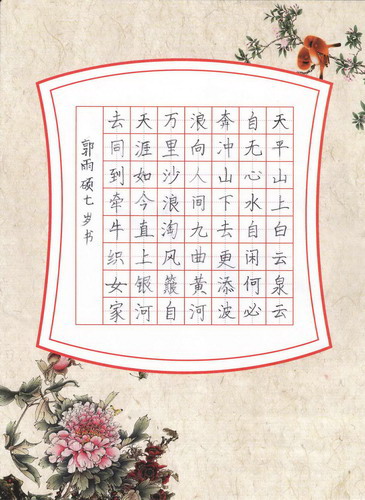 天平山上白云泉云
自无心水自闲何必
奔冲山下去更添波
浪向人间九曲黄河
万里沙浪淘风簸自
天涯如今直上银河
去同到牵牛织女家
郭雨硕七岁书